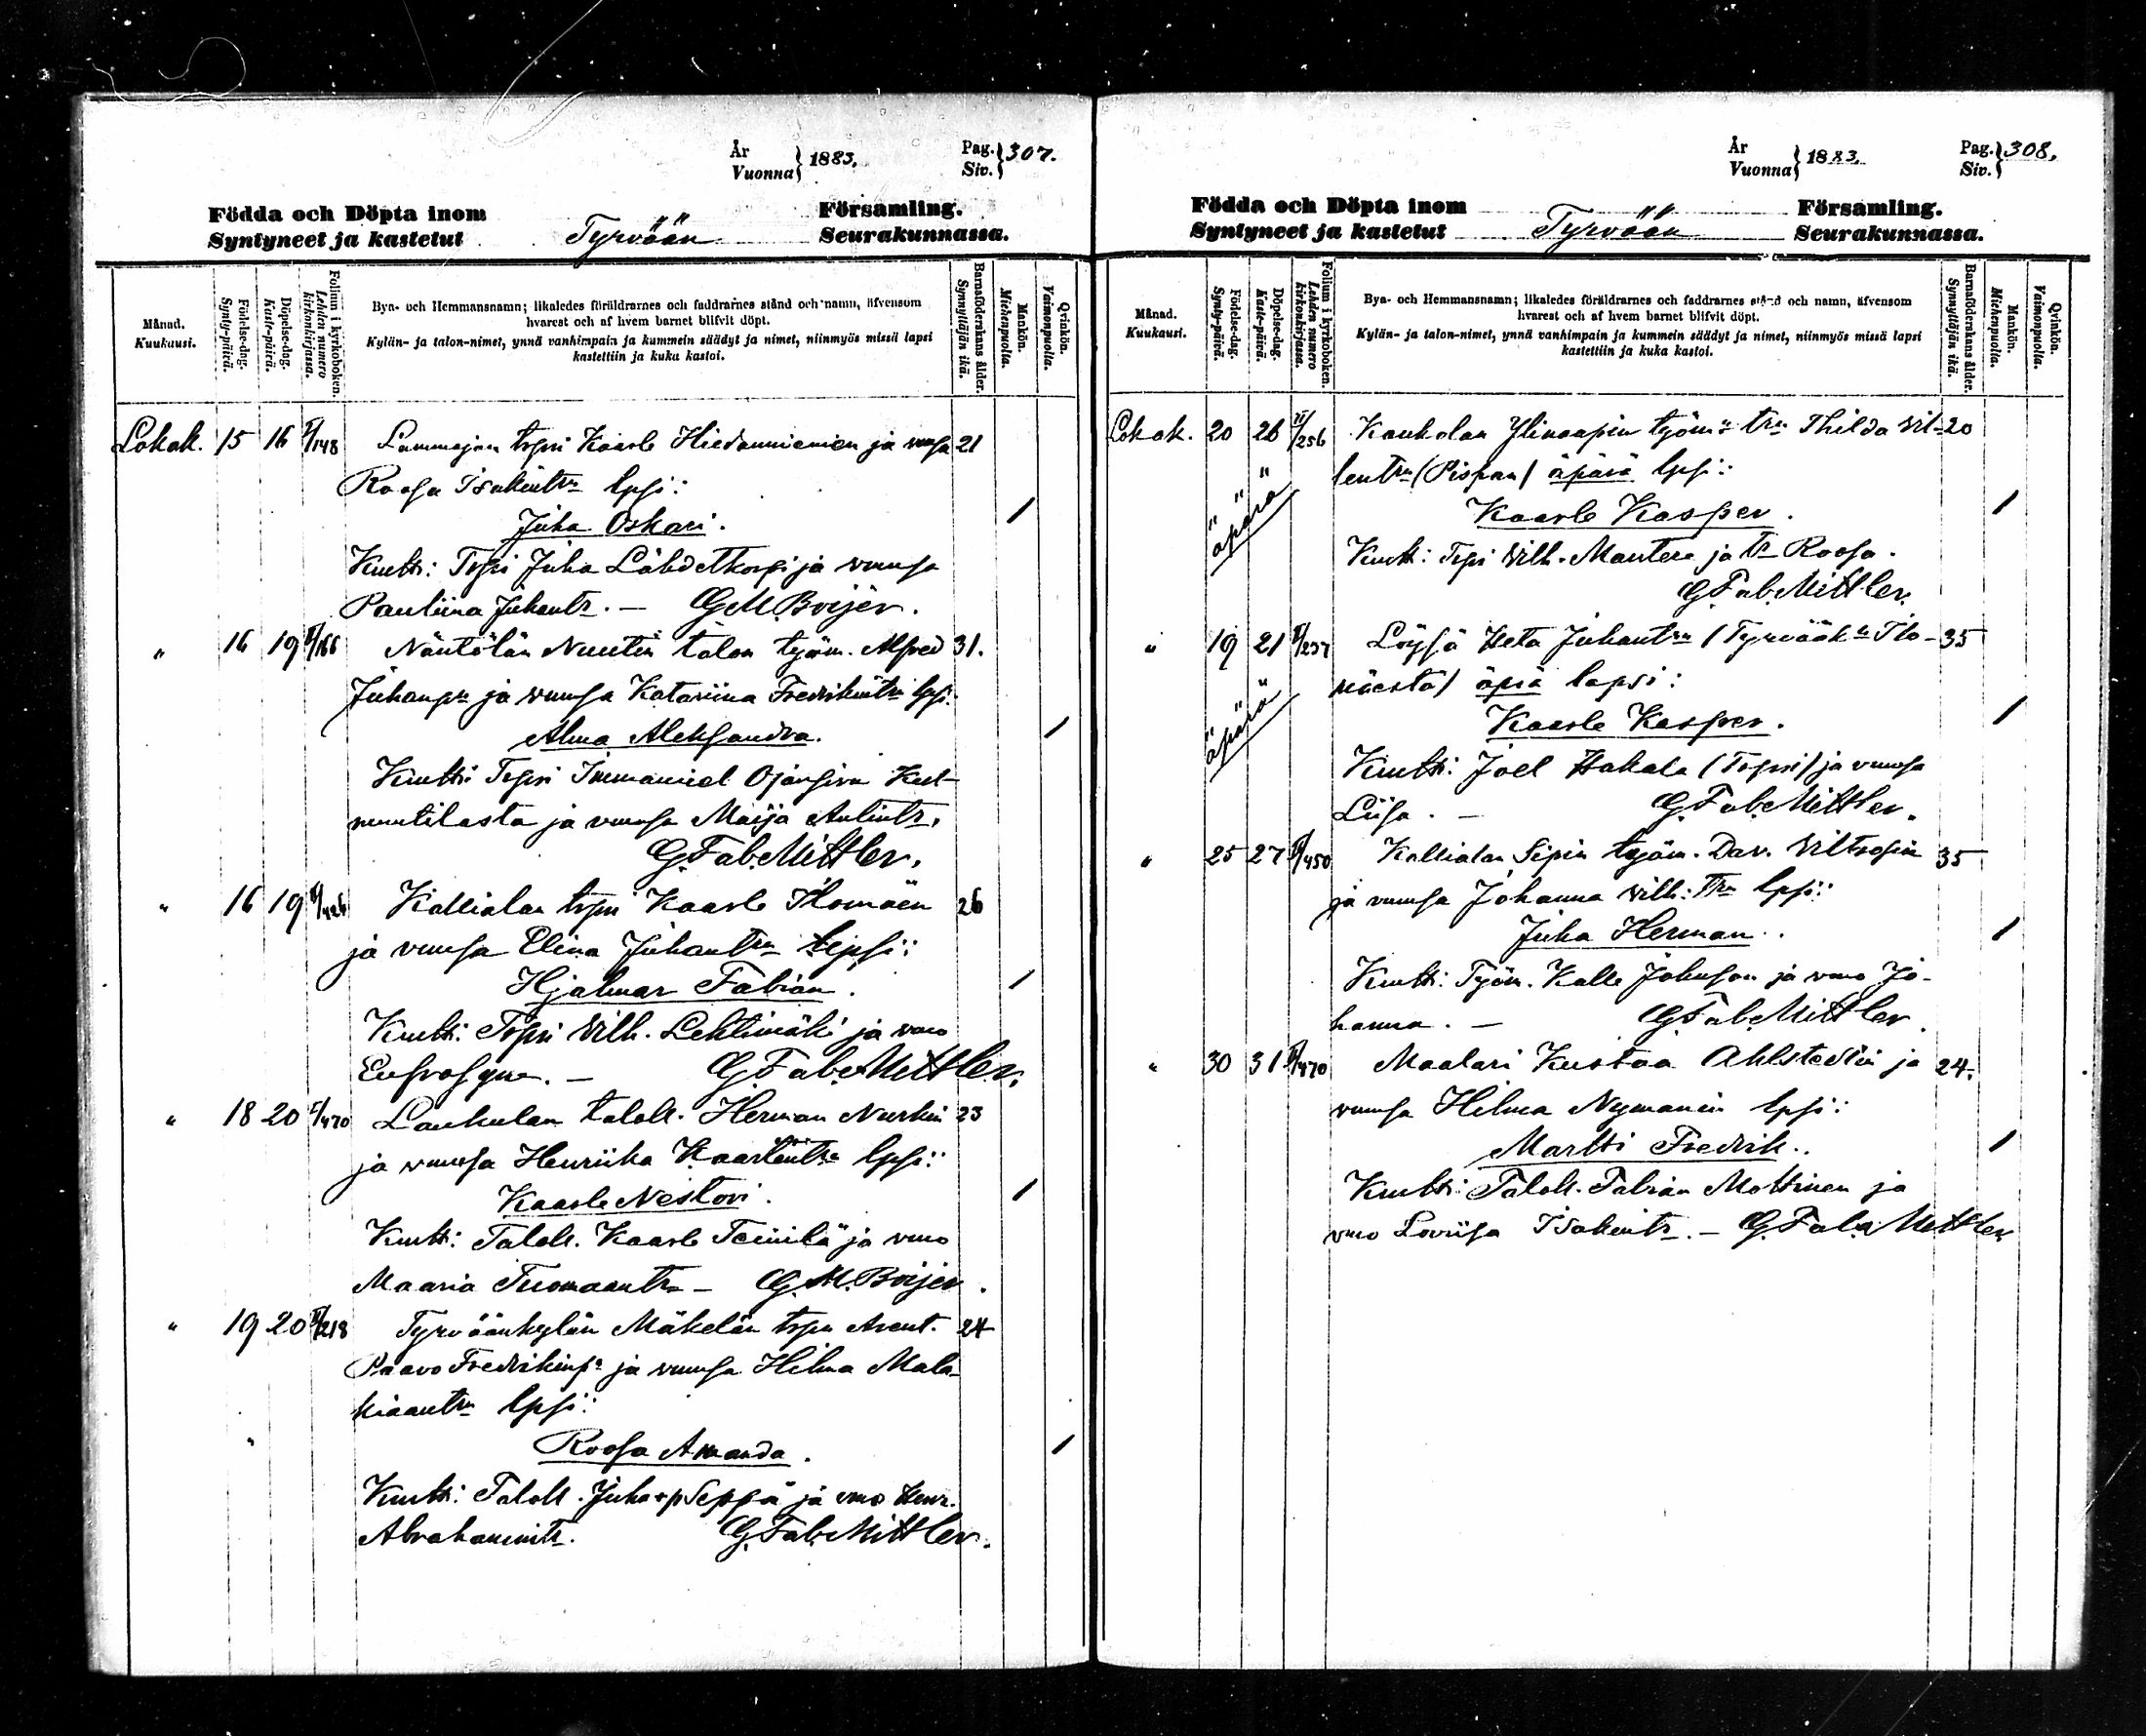 År
Vuonna } 1883.
Pag.
Siv. } 307.
Födda och Döpta inom Församling.
Syntyneet ja kastetut Tyrvään Seurakunnassa.
Månad.
Kuukausi.
Födelse-dag.
Synty-päivä.
Döpelse-dag.
Kaste-päivä.
Folium i kyrkoboken.
Lehden numero
kirkonkirjassa.
Bya- och Hemmansnamn; likaledes föräldrarnes och faddrarnes stånd och namn, äfvensom
hvarest och af hvem barnet blifvit döpt.
Kylän- ja talon-nimet, ynnä vanhimpain ja kummein säädyt ja nimet, niinmyös missä lapsi
kastettiin ja kuka kastoi.
Barnaföderskans ålder.
Synnyttäjän ikä.
Mankön.
Miehenpuolia.
Qvinkön.
Vaimonpuolia.
Lokak. 15 16 /148 Lammajan trpri Kaarle Hiedanniemen ja vmsa 21
Roosa Isakintr lpsi:
Juha Oskari. /
Kmtti: Trpri Juha Lähdetkorpi ja vmnsa
Pauliina Juhantr. — G M Boijer.
" 16 19 /166 Näntölän Nuutin talon työm. Alfred 31.
Juhanp ja vmnsa Katariina Fredrikintr lpsi:
Alma Aleksandra. /
Kmtti: Trpri Immanuel Ojansivu
ja vmnsa Maija Antintr.
G. Fab. Mittler.
" 16 19 /426 Kallialan trpri Kaarle Ilomäen 26
ja vmnsa Elina Juhantr lapsi:
Hjalmar Fabian. /
Kmtti: Trpri Vilh. Lehtimäki ja vmo
Eufrosyne. — G. Fab. Mittler.
" 18 20 /470 Laukulan taloll. Herman Nurkin 23
ja vmnsa Henriika Kaarlentr lpsi:
Kaarle Nestori. /
Kmtti: Taloll. Kaarle Teinilä ja vmo
Maaria Tuomaantr — G. M. Boijer.
" 19 20 /218 Tyrväänkylän Mäkelän trpn Arent. 24
Paavo Fredrikinp ja vmnsa Hilma Mala-
kiaantr lpsi:
" Roosa Amanda. /
Kmtti: Taloll. Juha Seppä ja vmo Henr.
Abrahamintr. G. Fab. Mittler.
År
Vuonna } 1883.
Pag.
Siv. } 308.
Födda och Döpta inom Församling.
Syntyneet ja kastetut Tyrvään Seurakunnassa.
Månad.
Kuukausi.
Födelse-dag.
Synty-päivä.
Döpelse-dag.
Kaste-päivä.
Folium i kyrkoboken.
Lehden numero
kirkonkirjassa.
Bya- och Hemmansnamn; likaledes föräldrarnes och faddrarnes stånd och namn, äfvensom
hvarest och af hvem barnet blifvit döpt.
Kylän- ja talon-nimet, ynnä vanhimpain ja kummein säädyt ja nimet, niinmyös missä lapsi
kastettiin ja kuka kastoi.
Barnaföderskans ålder.
Synnyttäjän ikä.
Mankön.
Miehenpuolia.
Qvinkön.
Vaimonpuolia.
Lokak. 20 26 /256 Kaukolan Ylinaapin työm: trn Thilda Vil- 20
lentrn (Pispan) äpärä lpsi:
äpärä Kaarle Kasper. /
Kmtt: Trpri Vilh. Mantere ja tr Roosa.
G. Fab. Mittler.
" 19 21 /257 Löysä Heta Juhantrn (Tyrvääk. Ilo- 35
mäestä) äprä lapsi:
äpärä Kaarle Kasper. /
Kmtti: Joel Hakala (Trpri) ja vmnsa
Liisa. — G. Fab. Mittler.
" 25 27 /450 Kallialan Sipin työm. Dav. 35
ja vmnsa Johanna Vilh: trn lpsi:
Juha Herman. /
Kmtti: Työm. Kalle Johnson ja vmo Jo-
hanna. — G. Fab. Mittler.
" 30 31 /470 Maalari Kustaa Ahlstedin ja 24.
vmnsa Hilma Nymanin lpsi:
Martti Fredrik. /
Kmtti: Taloll. Fabian Mottinen ja
vmo Loviisa Isakintr. — G. Fab. Mittler